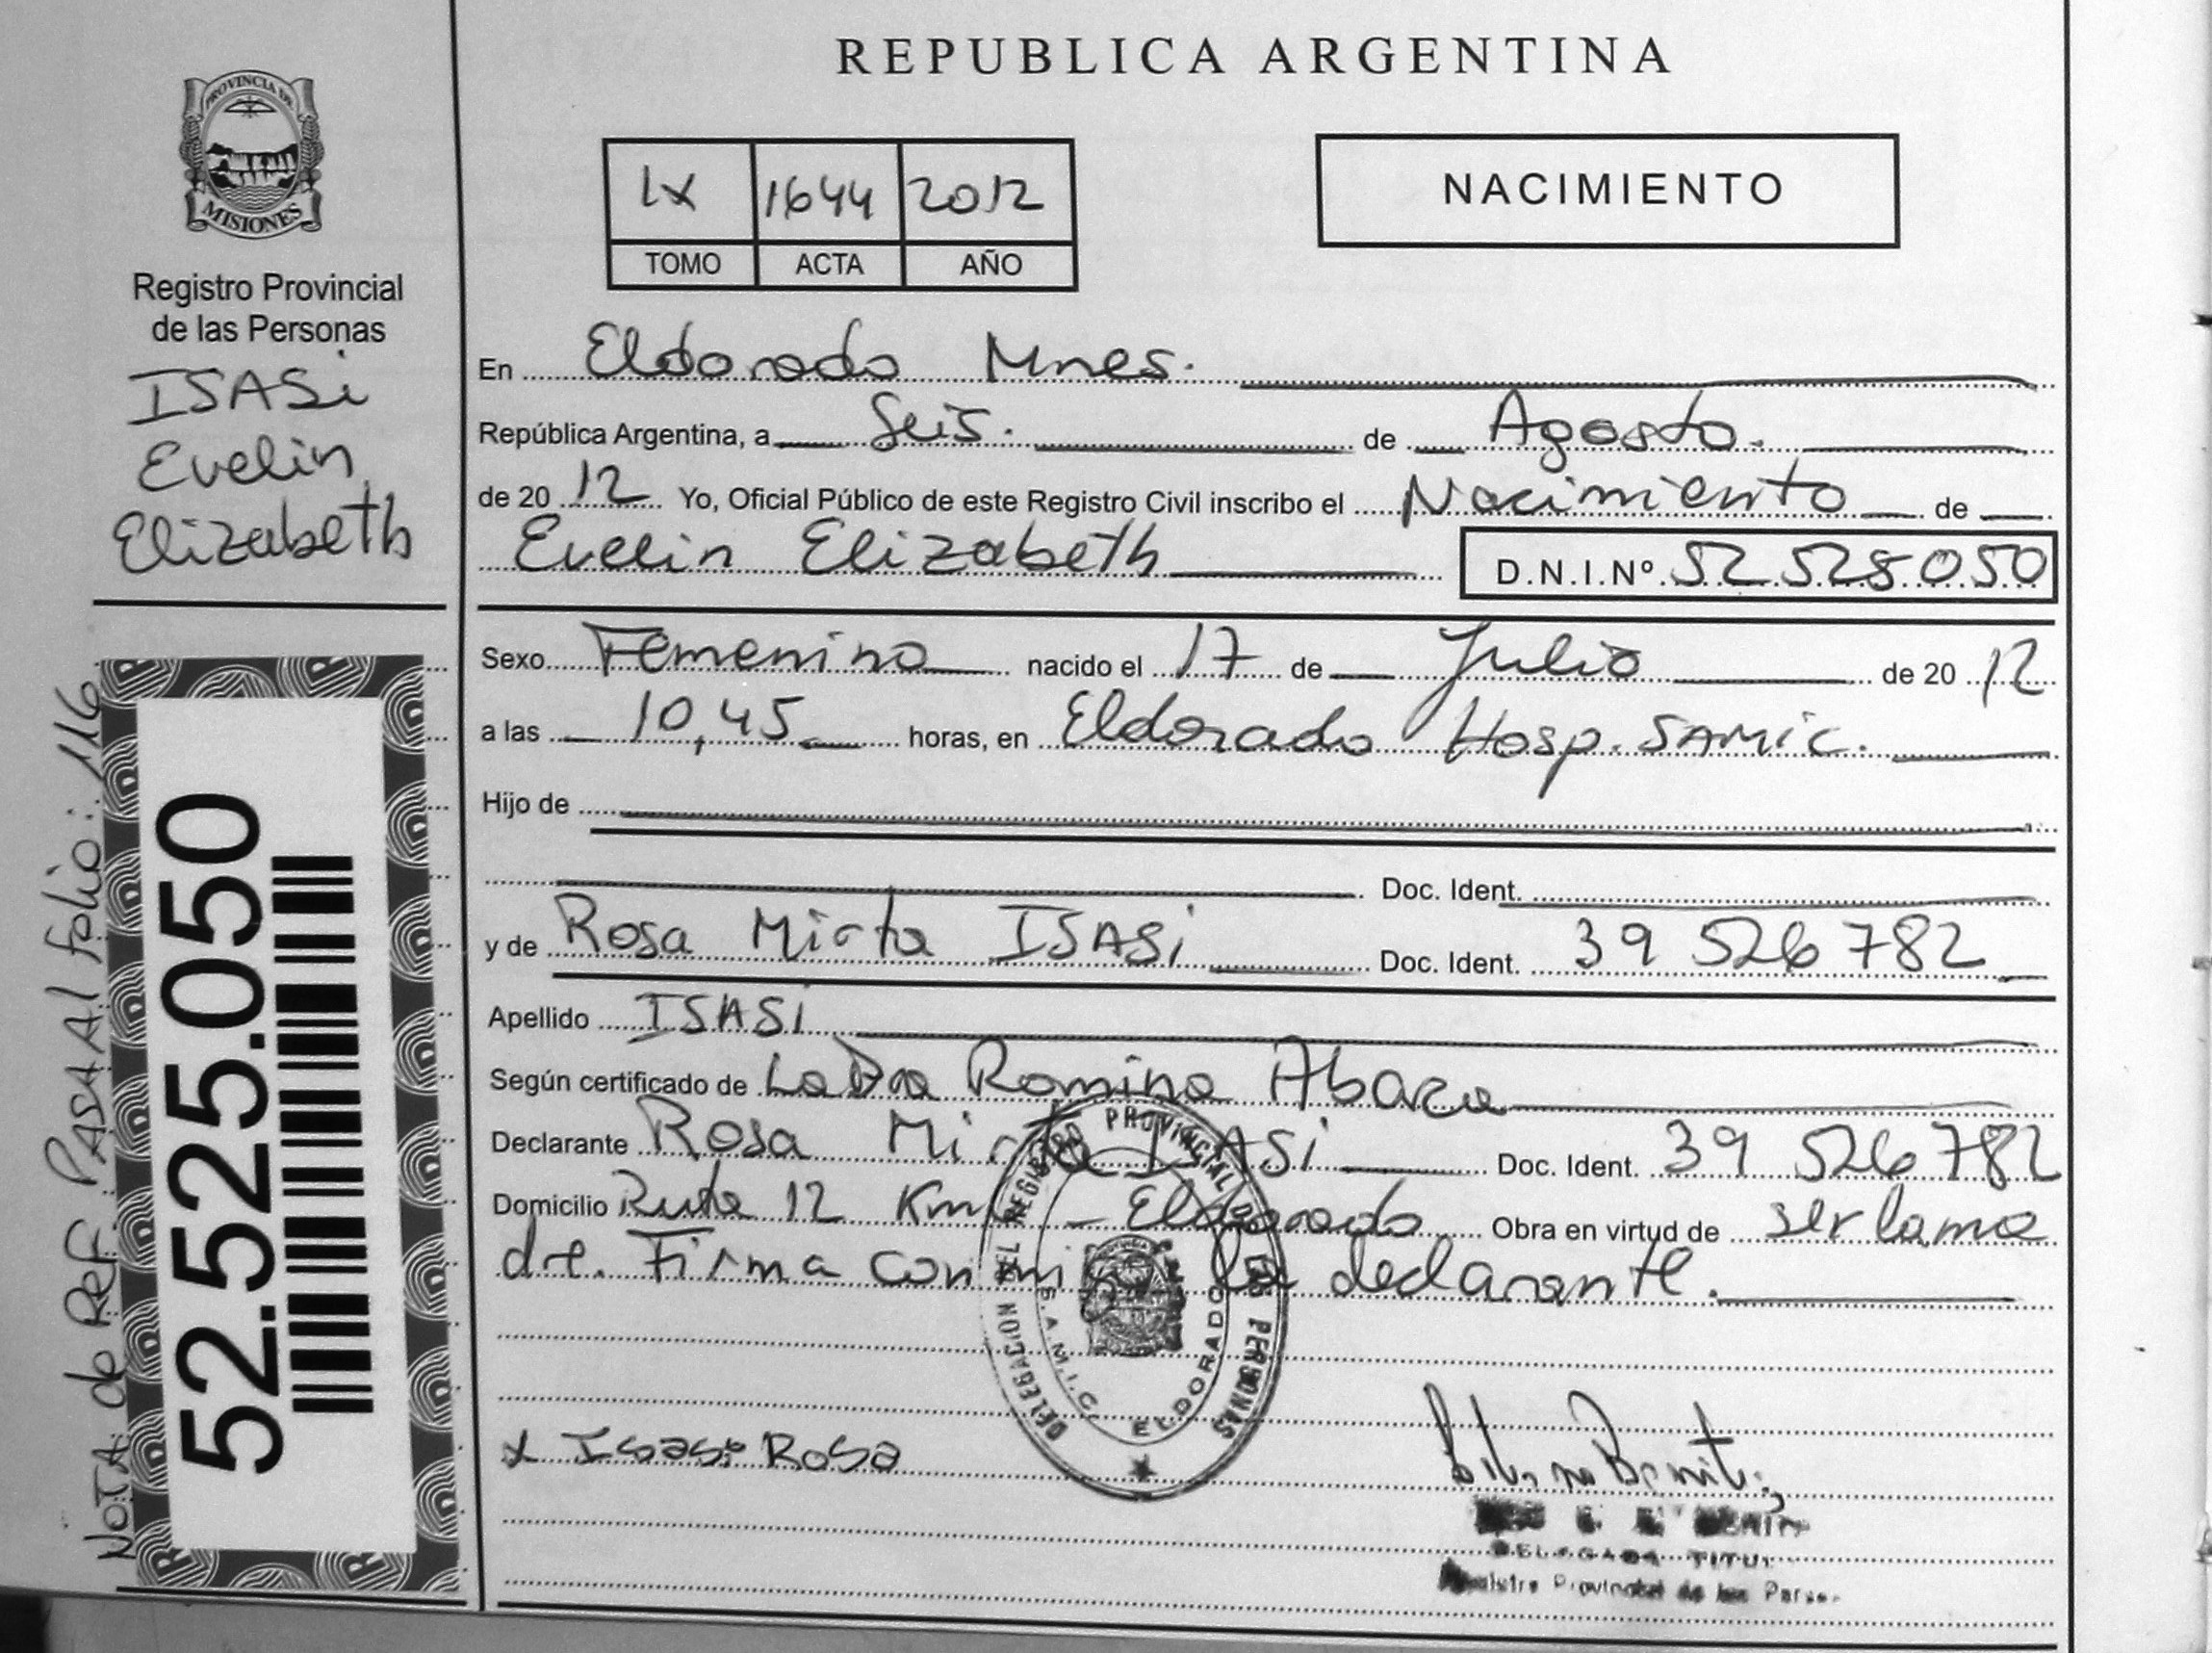 REPUBLICA ARGENTINA
PROVINCIA DE
MISIONES
Registro Provincial
de las Personas
ISASi
Evelin
Elizabeth
NOTA de REF. PASA Al folio: 116
52.525.050
IX 1644 2012
TOMO ACTA AÑO
NACIMIENTO
En Eldorado Mnes.
República Argentina, a Seis. de Agosto.
de 20 12 Yo, Oficial Público de este Registro Civil inscribo el Nacimiento de
Evelin Elizabeth D.N.I.Nº 52.525.050
Sexo Femenino nacido el 17 de Julio de 20 12
a las 10,45 horas, en Eldorado Hosp. SAMIC.
Hijo de
Doc. Ident.
y de Rosa Mirta ISASi Doc. Ident. 39 526 782
Apellido ISASi
Según certificado de La Dra Romina Abaca
Declarante Rosa Mirta ISASi Doc. Ident. 39 526 782
Domicilio Ruta 12 Km - Eldorado Obra en virtud de ser la ma
dre. Firma conmigo la declarante.
DELEGACION DEL REGISTRO PROVINCIAL DE LAS PERSONAS
S.A.M.I.C. ELDORADO
x Isasi Rosa
DELEGADA TITUL
Provincial de las Person